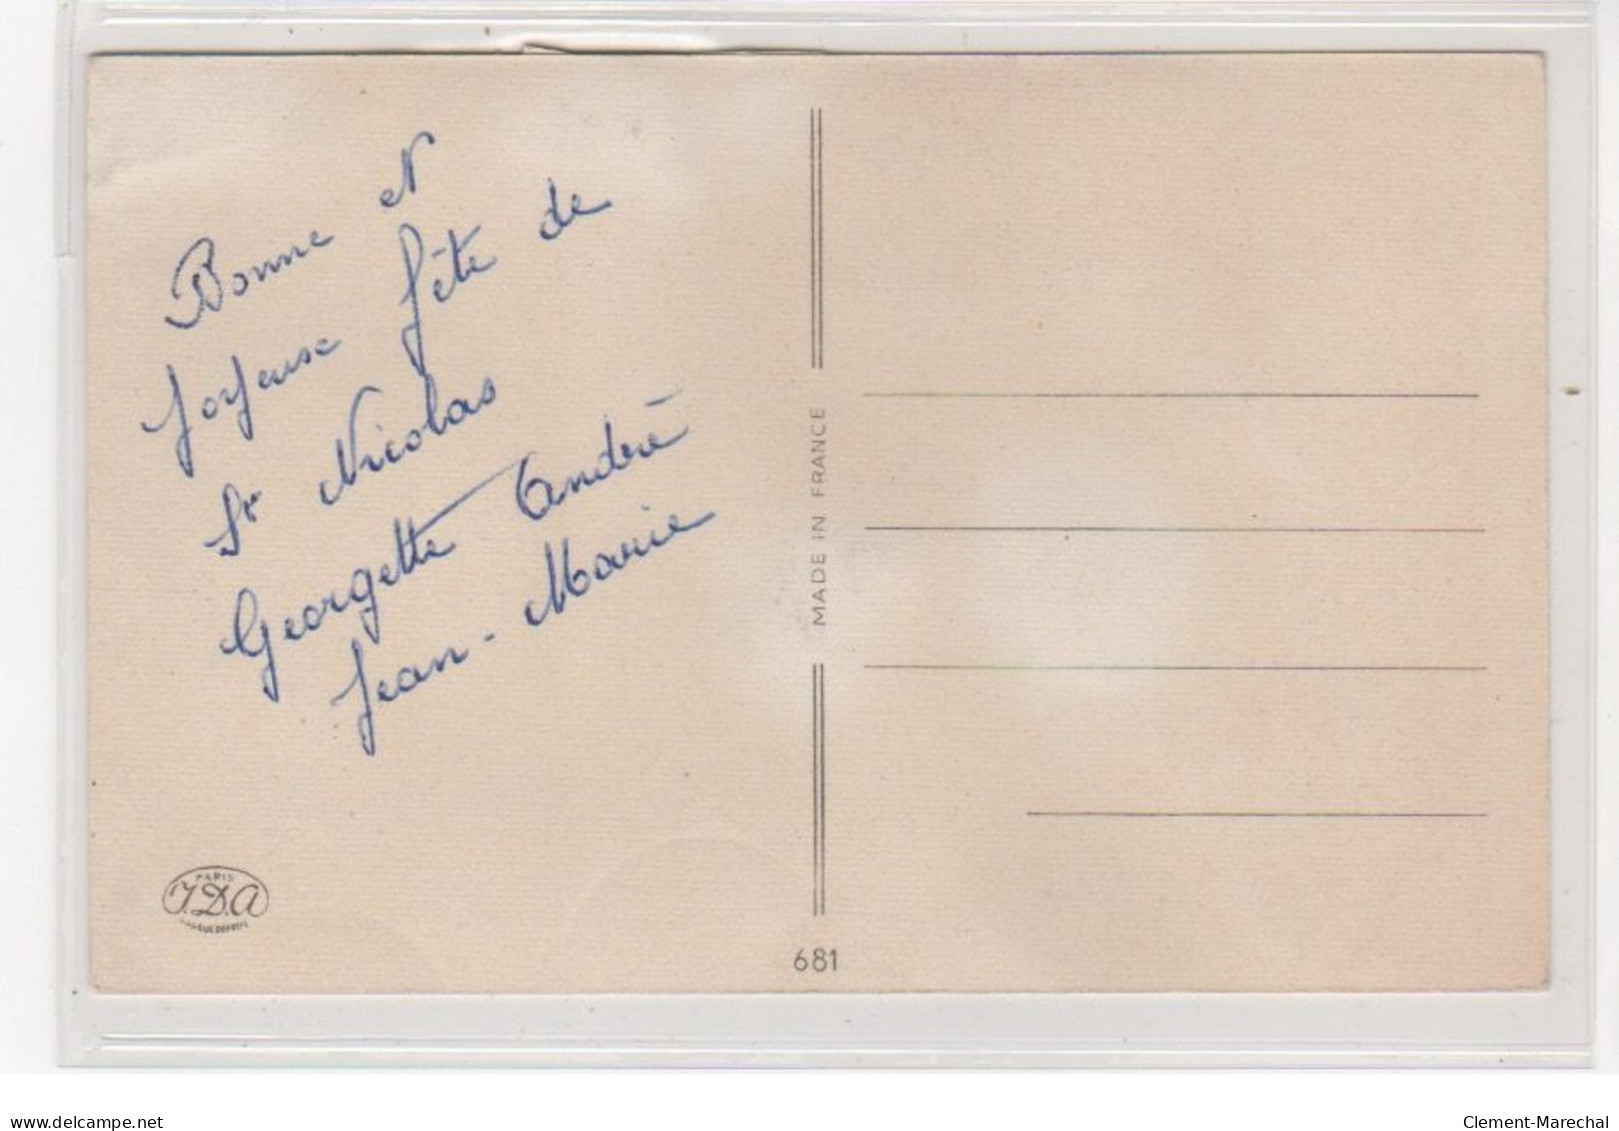 Bonne et
Joyeuse fête de
St Nicolas
Georgette André
Jean-Marie
MADE IN FRANCE
PARIS
J.D.A
681
delcampe.net
Clement-Marechal